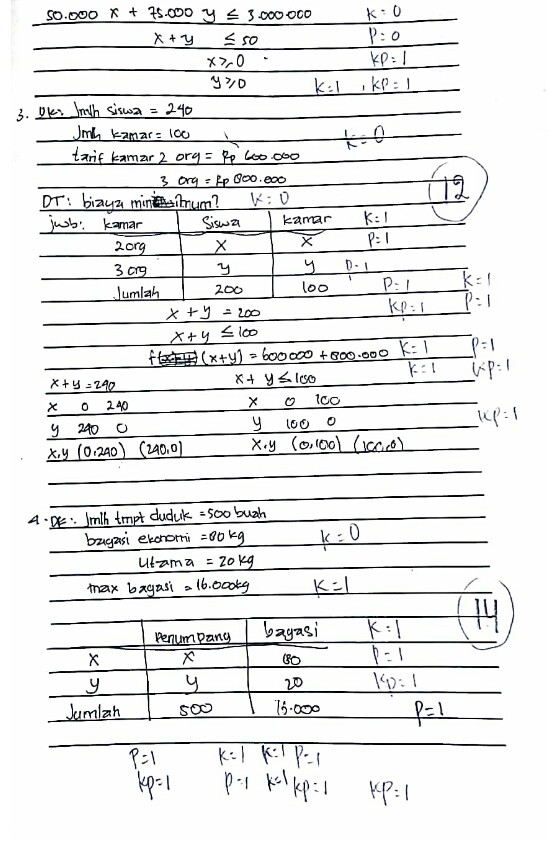 50.000 x + 75.000 y ≤ 3.000.000 K=0
x + y ≤ 50 P=0
x ≥ 0 KP=1
y ≥ 0 K=1, KP=1
3. DK: Jmlh siswa = 240
Jmlh kamar = 100 K=0
tarif kamar 2 org = Rp 600.000
3 org = Rp 800.000
DT: biaya minimum? K=0 12
jwb: kamar Siswa kamar K=1
2 org x x P=1
3 org y y P=1
Jumlah 200 100 P=1 K=1
x + y = 200 KP=1 P=1
x + y ≤ 100
f (x+y) = 600000 + 800.000 K=1 P=1
x + y = 240 x + y ≤ 100 K=1 KP=1
x 0 240 x 0 100
y 240 0 y 100 0 KP=1
x,y (0,240) (240,0) x,y (0,100) (100,0)
4. DK: Jmlh tmpt duduk = 500 buah
bagasi ekonomi = 80 kg K=0
utama = 20 kg
max bagasi = 16.000kg K=1
Penumpang bagasi K=1 14
x x 80 P=1
y y 20 KP=1
Jumlah 500 P=1
P=1 K=1 K=1 P=1
KP=1 P=1 K=1 KP=1 KP=1